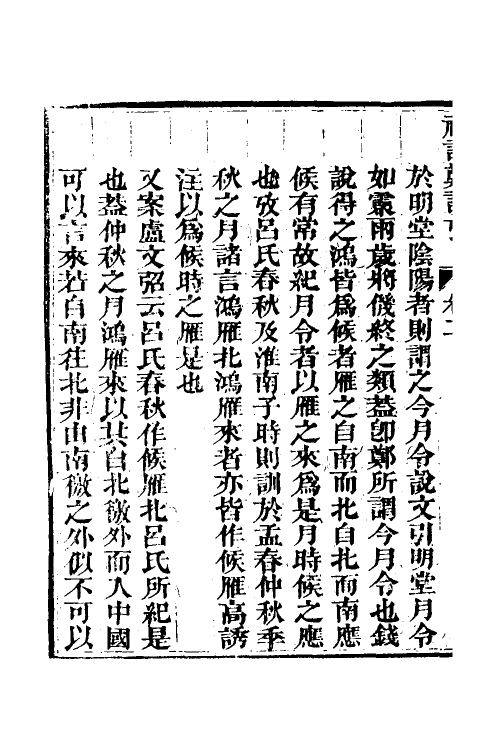 於明堂陰陽者則謂之今月令說文引明堂月令
如霖雨歲將僟終之類葢卽鄭所謂今月令也錢
說得之鴻皆爲候者雁之自南而北自北而南應
候有常故紀月令者以雁之來爲是月時候之應
也攷呂氏春秋及淮南子時則訓於孟春仲秋季
秋之月諸言鴻雁北鴻雁來者亦皆作候雁高誘
注以爲候時之雁是也
又案盧文弨云呂氏春秋作候雁北呂氏所紀是
也葢仲秋之月鴻雁來以其自北徼外而入中國
可以言來若自南往北非由南徼之外似不可以